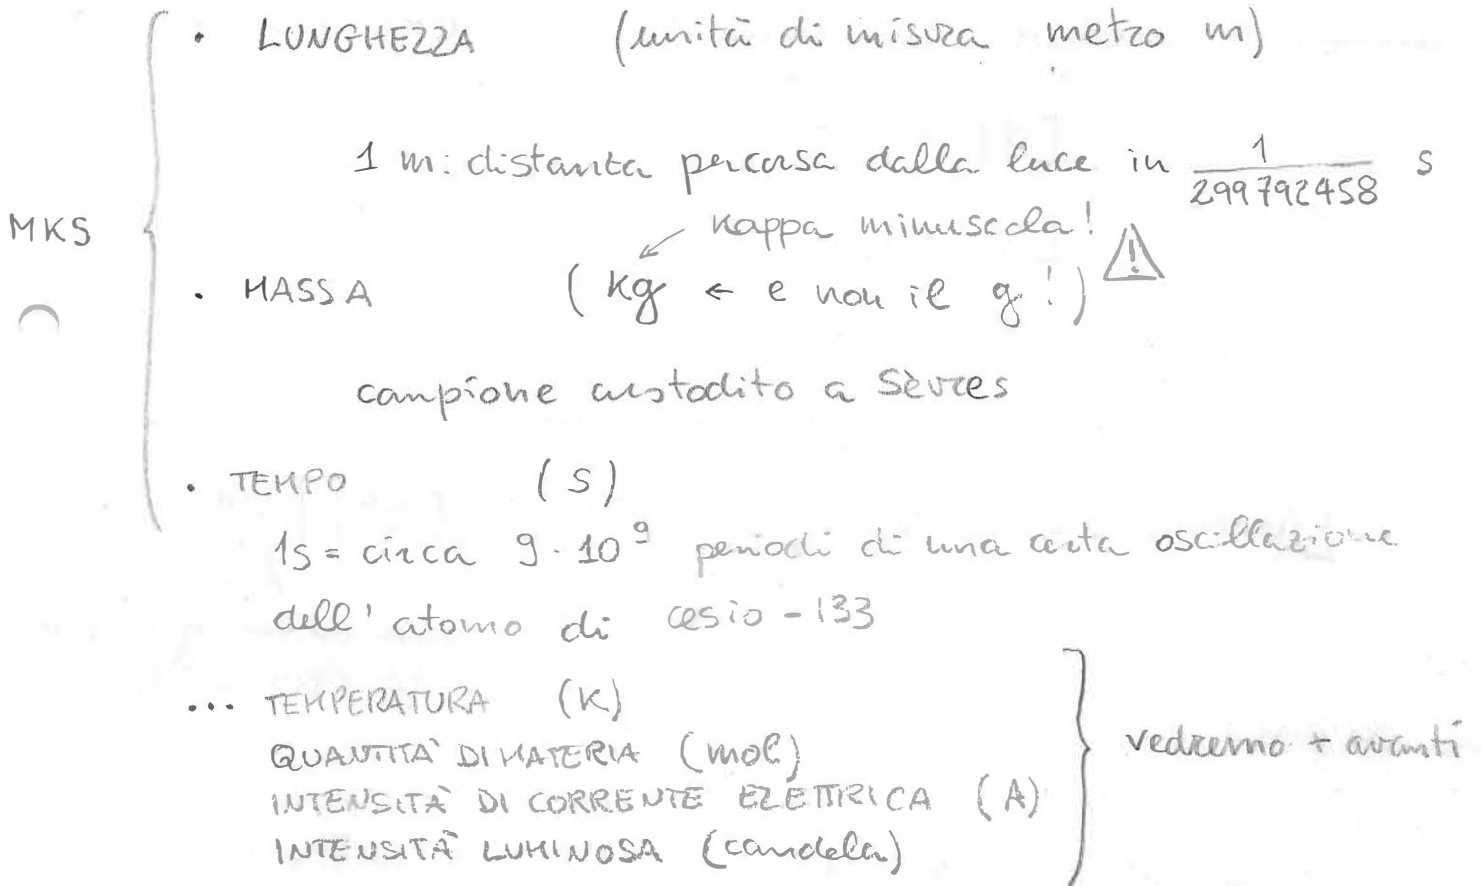 • LUNGHEZZA (unità di misura metro m)
1 m: distanza percorsa dalla luce in 1/299792458 s
kappa minuscola!
MKS
• MASSA (kg ← e non il g!) ⚠
campione custodito a Sèvres
• TEMPO (s)
1s = circa 9·10⁹ periodi di una certa oscillazione
dell'atomo di cesio-133
... TEMPERATURA (K)
QUANTITÀ DI MATERIA (mol)
vedremo + avanti
INTENSITÀ DI CORRENTE ELETTRICA (A)
INTENSITÀ LUMINOSA (candela)